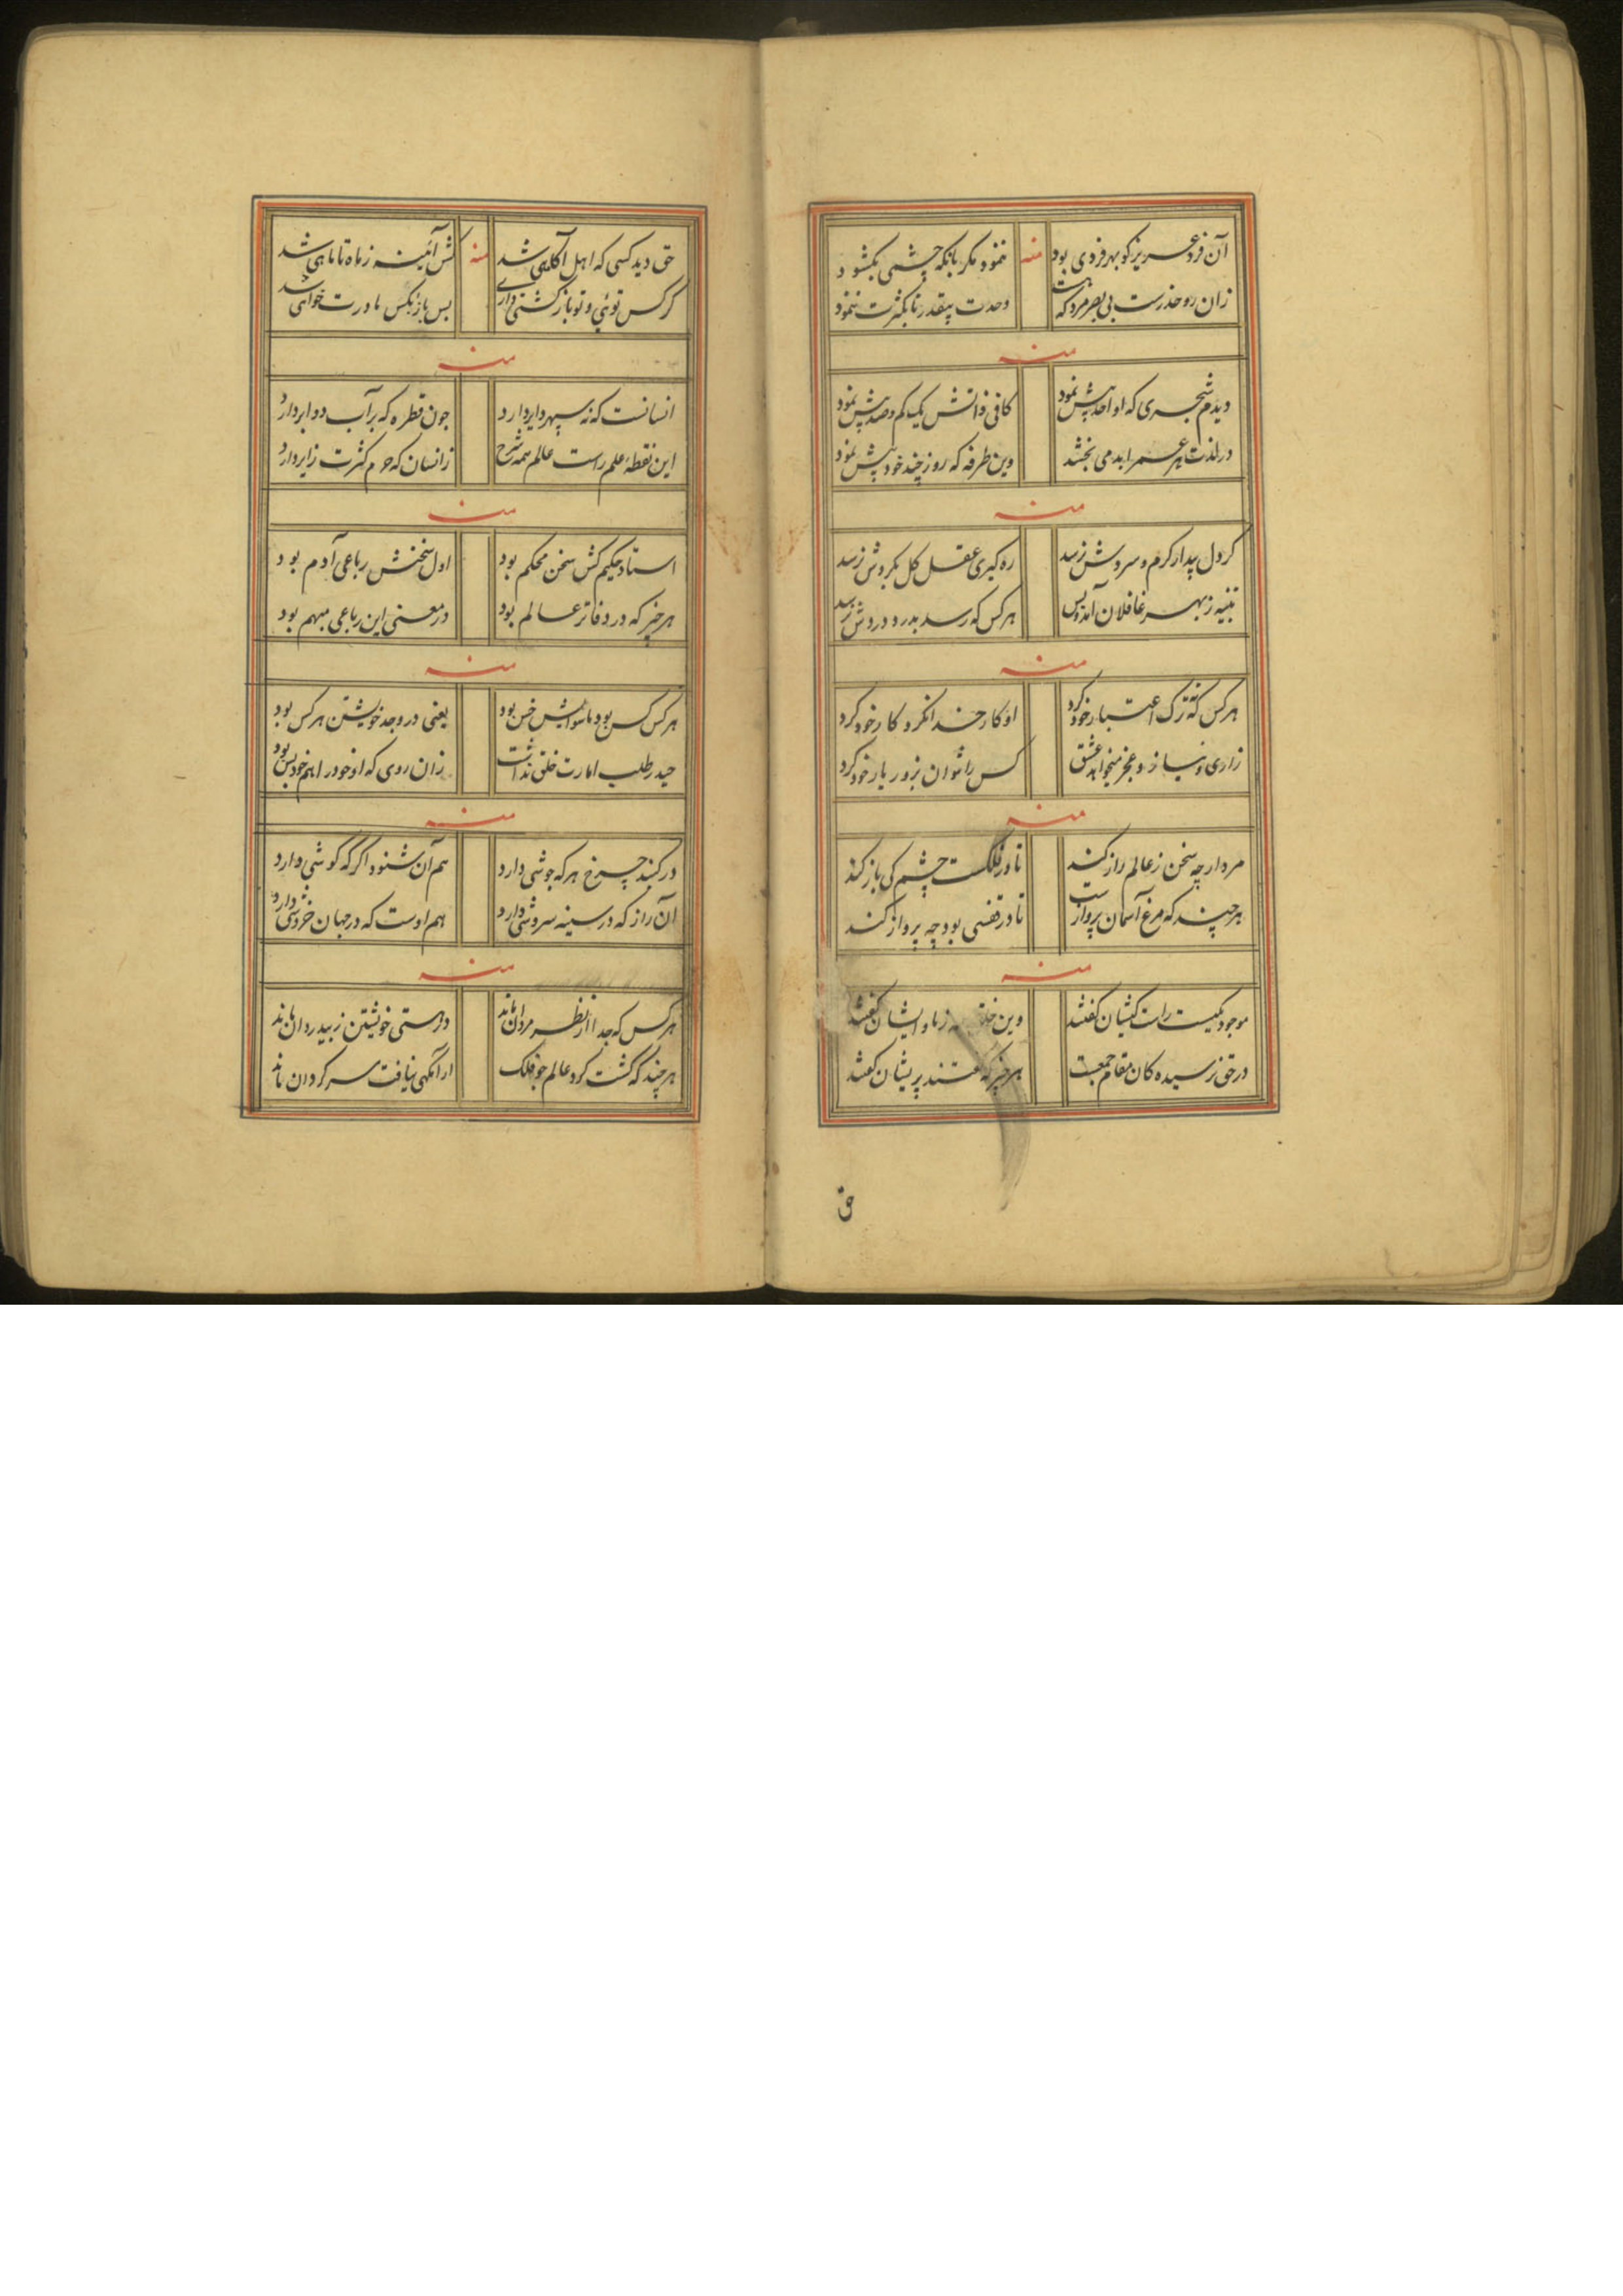 آن فرد عزیز کو بهر فردی بود
منه
ننمود مگر بانکه چشمی بکشود
زان رو حذرست بی بصر مرد که هست
وحدت بیقدر تا بکثرت ننمود
منه
دیدم شجری که او احد پیش نمود
کافی ذاتش یک کم و صد پیش نمود
در لذت هر عمر ابد می بخشد
وین طرفه که روز چند خود پیش نمود
منه
کر دل بیدار کرم و سروش نرسد
ره کیری عقل کل بکروش نرسد
تنبیه ز بهر غافلان آمد و بس
هر کس که رسد بدرد دروش نرسد
منه
هر کس که نه ترک اعتبار خود کرد
او کار خدا نکرد و کار خود کرد
زاری و نیاز و عجز میخواهد عشق
کس را نتوان بزور یار خود کرد
منه
مرد ارچه سخن ز عالم راز کند
تا در فلکست چشم کی باز کند
هر چند که مرغ آسمان پروازست
تا در قفسی بود چه پرواز کند
منه
موجود یکیست رات کیشان کفتند
وین خلق ز ما و ایشان کفتند
در حق نرسیده کان مقام جمعیت
هر خبر که کفتند پریشان کفتند
ق
حق دید کسی که اهل آکاهی شد
منه
کش آئینه ز ماه تا ماهی شد
کر کس توئی و تو بازکشتی داری
پس باز بکس مادرت خواهی شد
منه
انسانست که نه سپهر دایر دارد
چون قطره که بر آب دوایر دارد
این نقطه علم راست عالم همه شرح
زانسان که جرم کثرت زایر دارد
منه
استاد حکیم کش سخن محکم بود
اول سخنش رباعی آدم بود
هر خبر که در دفاتر عالم بود
در معنی این رباعی مبهم بود
منه
هر کس کس بود ماسوایش خس بود
یعنی در وجد خویشتن هر کس بود
حیدر طلب امارت خلق نداشت
زان روی که او خود را هم خود بس بود
منه
در کنبد چرخ هر که جوشی دارد
هم آن شنود اکر که کوشی دارد
آن راز که در سینه سروشی دارد
هم اوست که در جهان خروشی دارد
منه
هر کس که جدا از نظر مردان ماند
در هستی خویشتن ز بیدردان ماند
هر چند که کشت کرد عالم جو فلک
آرامکهی نیافت سرکردان ماند